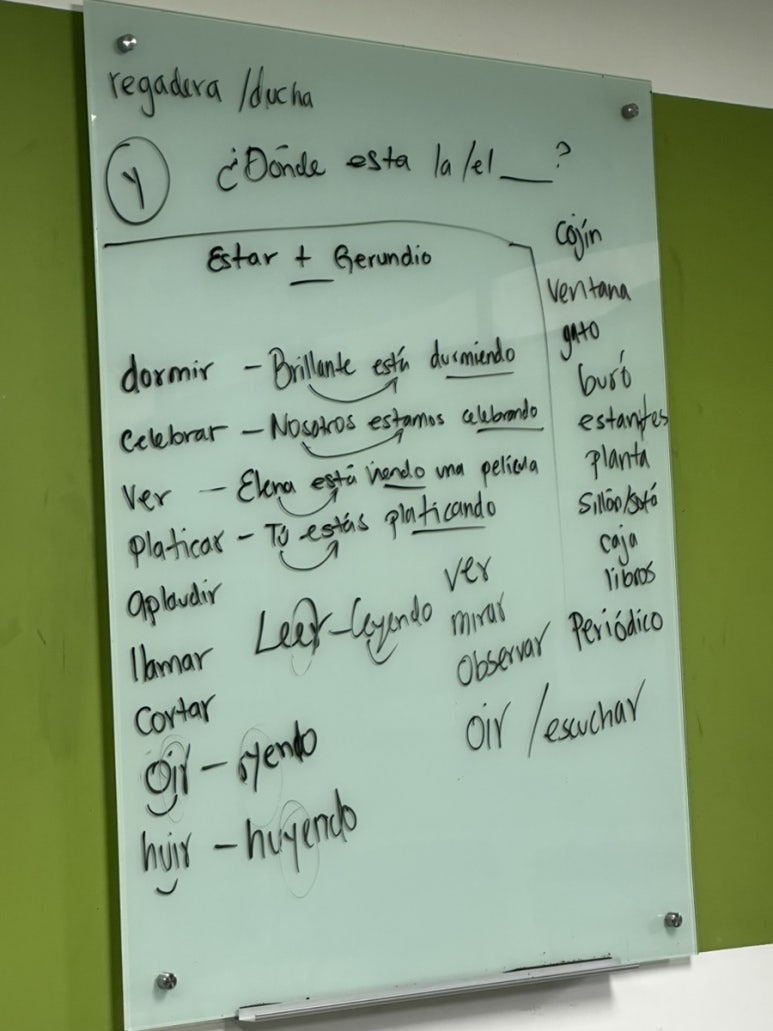 regadera /ducha
y ¿Dónde esta la/el ___?
Estar + Gerundio
dormir - Brillante está durmiendo
Celebrar - Nosotros estamos celebrando
Ver - Elena está viendo una película
Platicar - Tú estás platicando
aplaudir
llamar
Cortar
Leer - leyendo
oir - oyendo
huir - huyendo
ver
mirar
observar
oir /escuchar
Cojín
ventana
gato
buró
estantes
planta
Sillón/sofá
caja
libros
Periódico